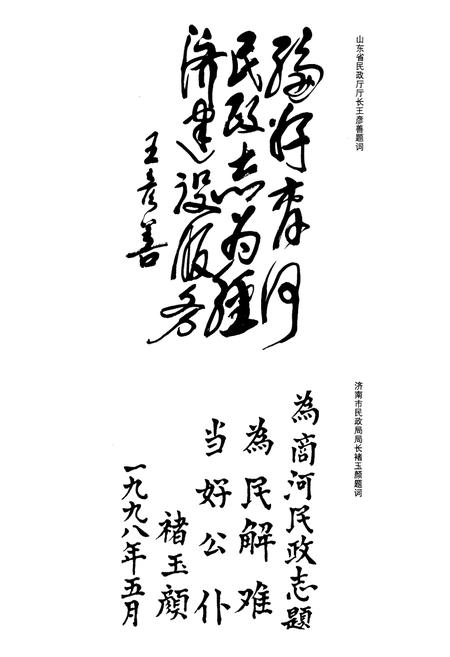 山东省民政厅厅长王彦善题词
编好商河
民政志为经
济建设服务
王彦善
济南市民政局局长褚玉颜题词
為商河民政志題
為民解难
当好公仆
褚玉顔
一九九八年五月